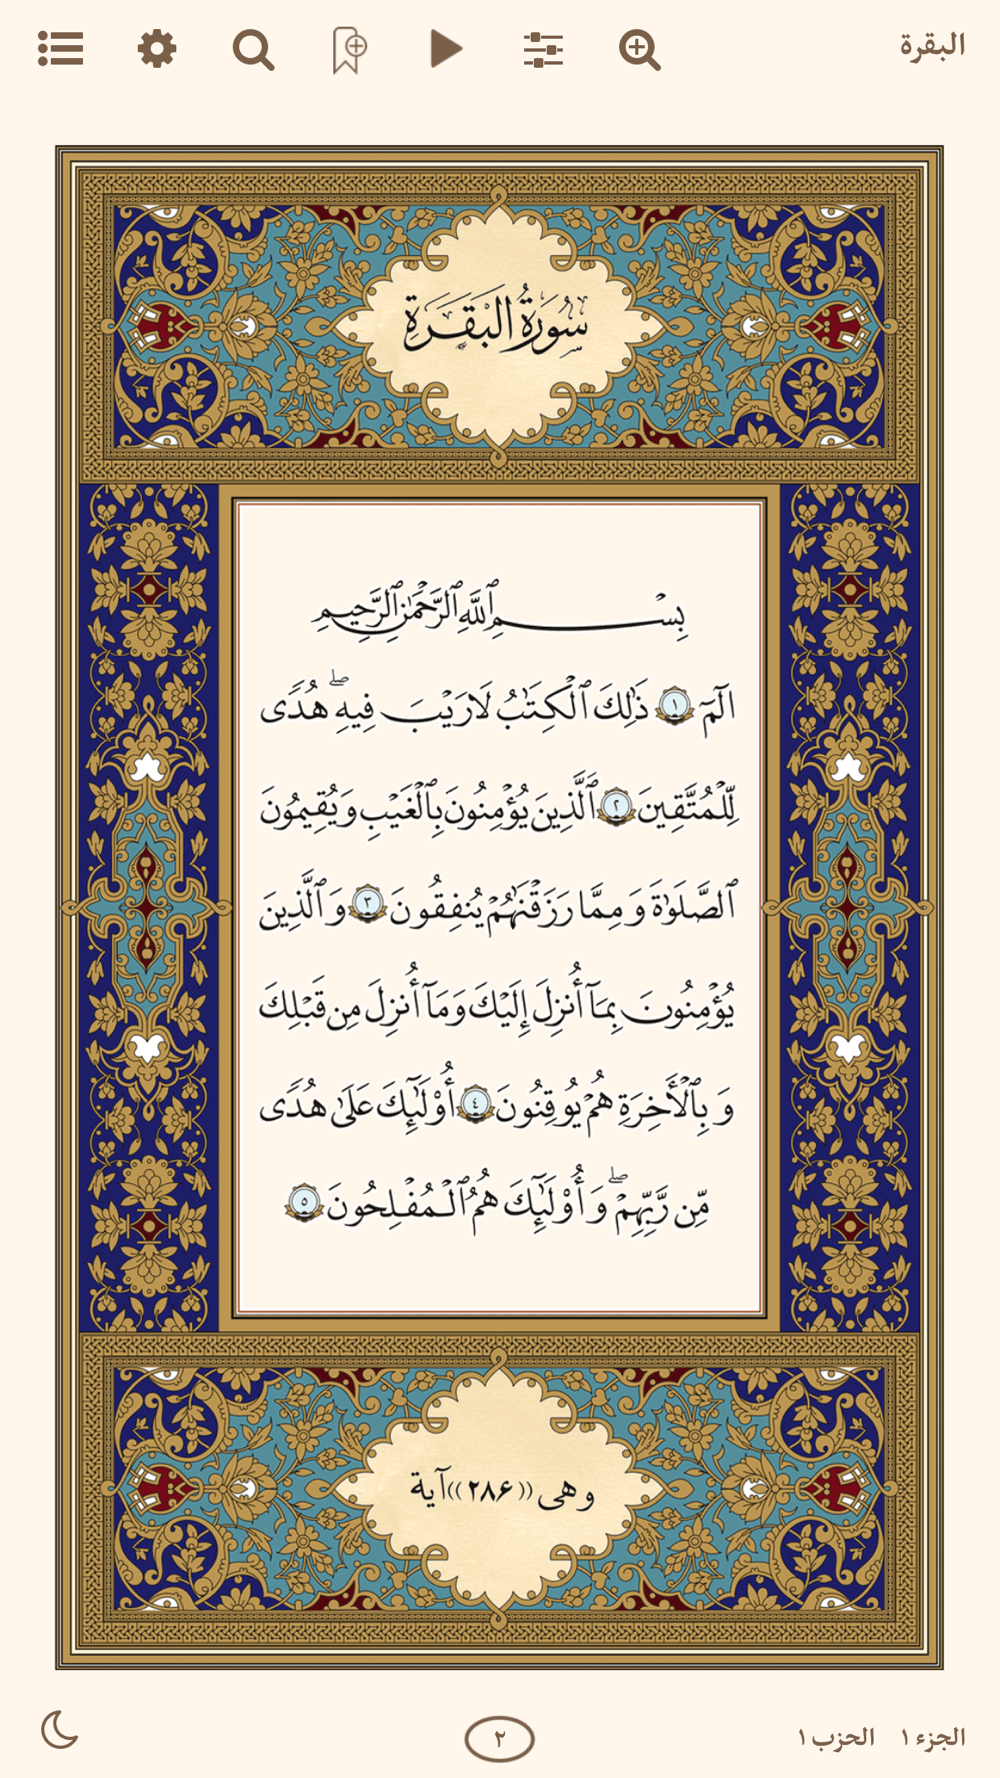 البقرة
سُورَةُ البَقَرَةِ
بِسْمِ ٱللَّهِ ٱلرَّحْمَٰنِ ٱلرَّحِيمِ
الٓمٓ ١ ذَٰلِكَ ٱلْكِتَٰبُ لَا رَيْبَ فِيهِ ۖ هُدًى
لِّلْمُتَّقِينَ ٢ ٱلَّذِينَ يُؤْمِنُونَ بِٱلْغَيْبِ وَيُقِيمُونَ
ٱلصَّلَوٰةَ وَمِمَّا رَزَقْنَٰهُمْ يُنفِقُونَ ٣ وَٱلَّذِينَ
يُؤْمِنُونَ بِمَآ أُنزِلَ إِلَيْكَ وَمَآ أُنزِلَ مِن قَبْلِكَ
وَبِٱلْأَخِرَةِ هُمْ يُوقِنُونَ ٤ أُوْلَٰٓئِكَ عَلَىٰ هُدًى
مِّن رَّبِّهِمْ ۖ وَأُوْلَٰٓئِكَ هُمُ ٱلْمُفْلِحُونَ ٥
وهی ((۲۸۶)) آية
الجزء ١ الحزب ١
٢